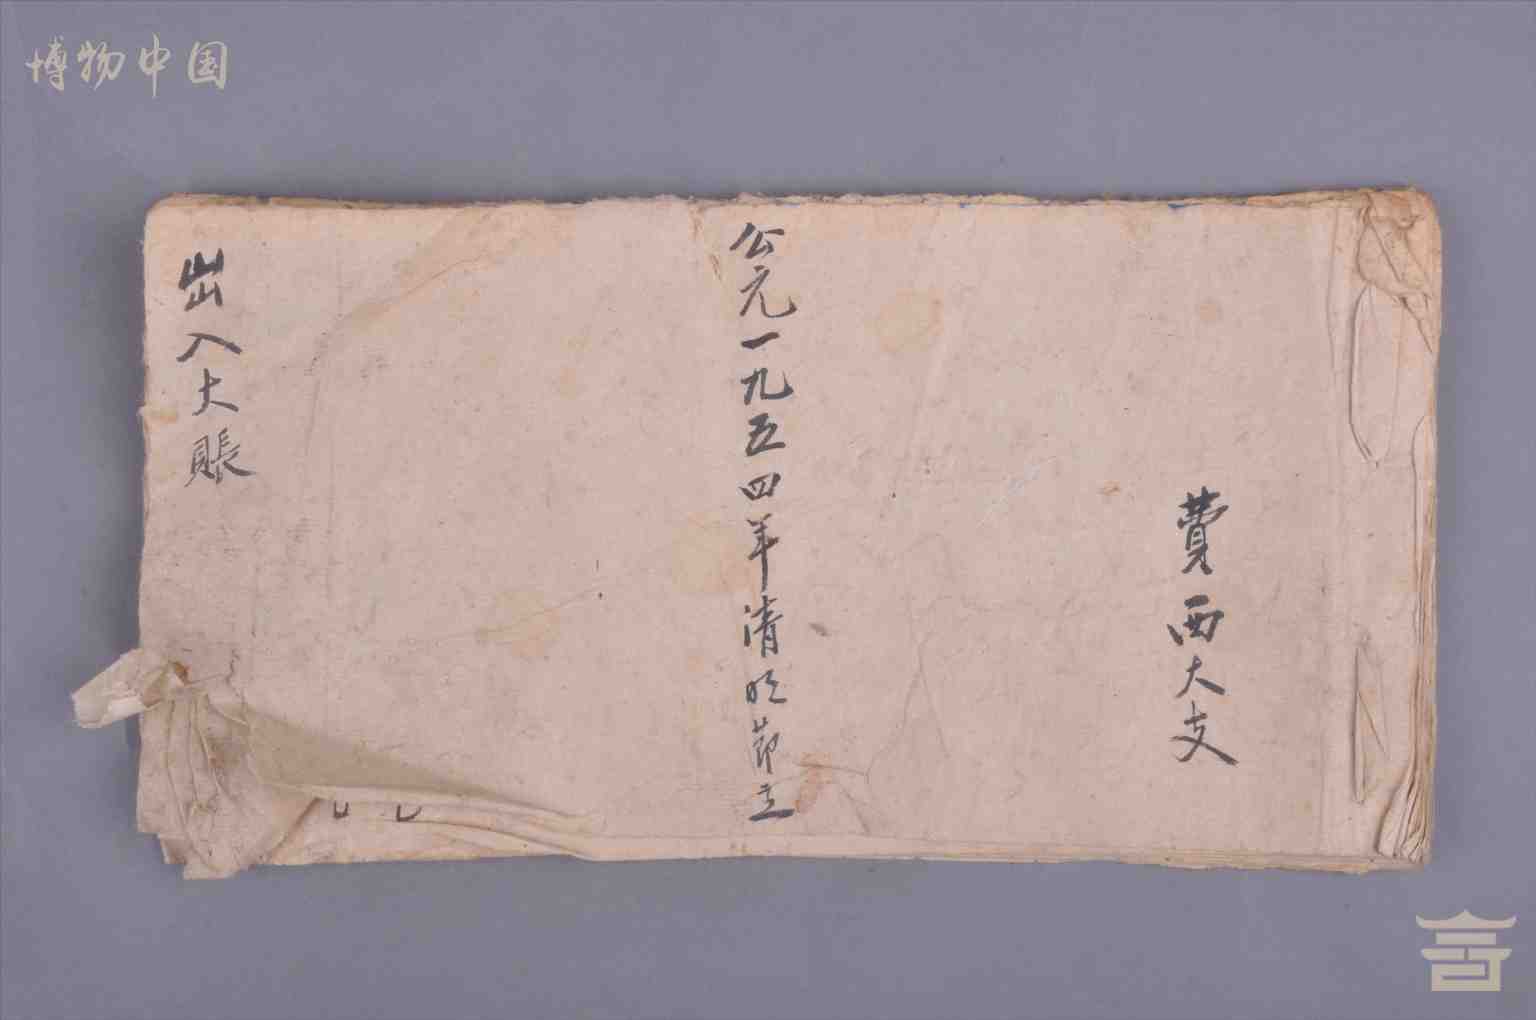 博物中国
費西大支
公元一九五四年清明節立
出入大賬